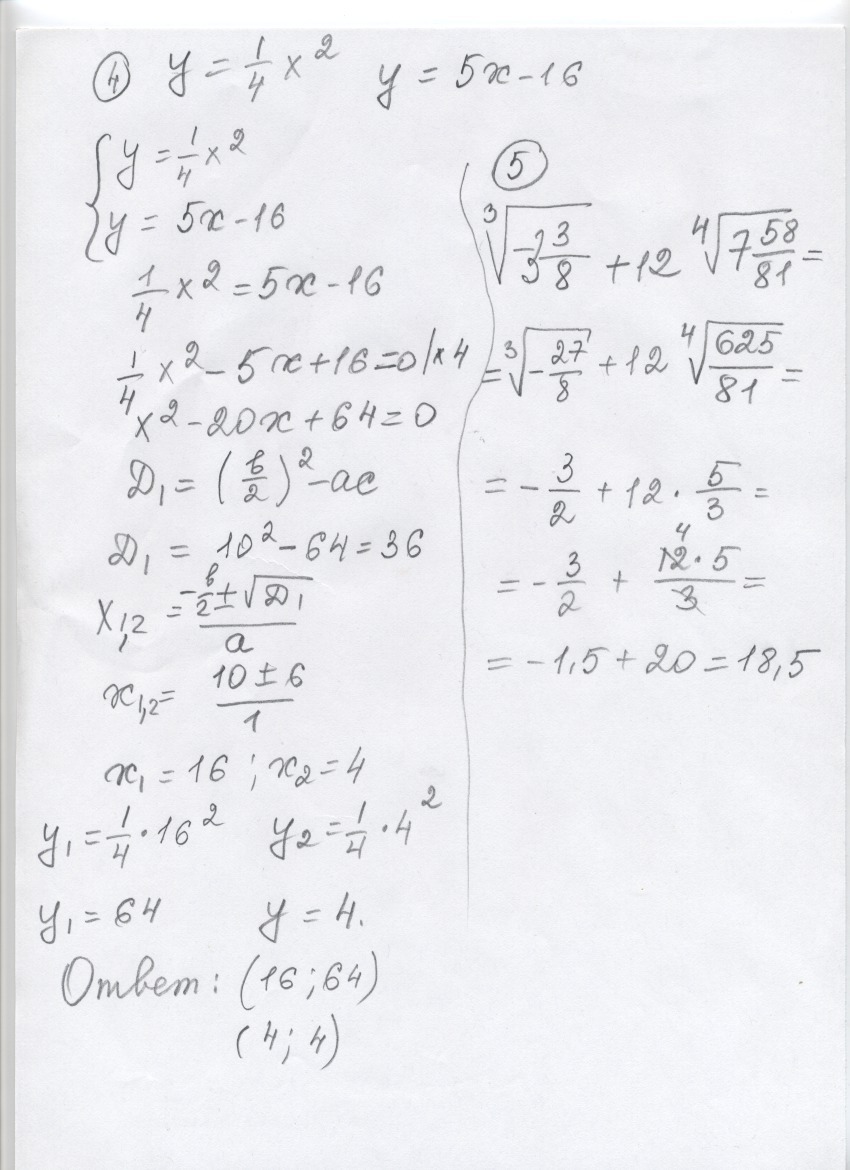 ④ y = 1/4 x² y = 5x - 16
{ y = 1/4 x²
y = 5x - 16
1/4 x² = 5x - 16
1/4 x² - 5x + 16 = 0 | × 4
x² - 20x + 64 = 0
D₁ = (b/2)² - ac
D₁ = 10² - 64 = 36
x₁,₂ = (-b/2 ± √D₁)/a
x₁,₂ = (10 ± 6)/1
x₁ = 16 ; x₂ = 4
y₁ = 1/4 · 16² y₂ = 1/4 · 4²
y₁ = 64 y = 4.
Ответ: (16 ; 64)
(4 ; 4)
⑤
∛(-3 3/8) + 12 ∜(7 58/81) =
= ∛(-27/8) + 12 ∜(625/81) =
= - 3/2 + 12 · 5/3 =
4
= - 3/2 + (12 · 5)/3 =
= -1,5 + 20 = 18,5